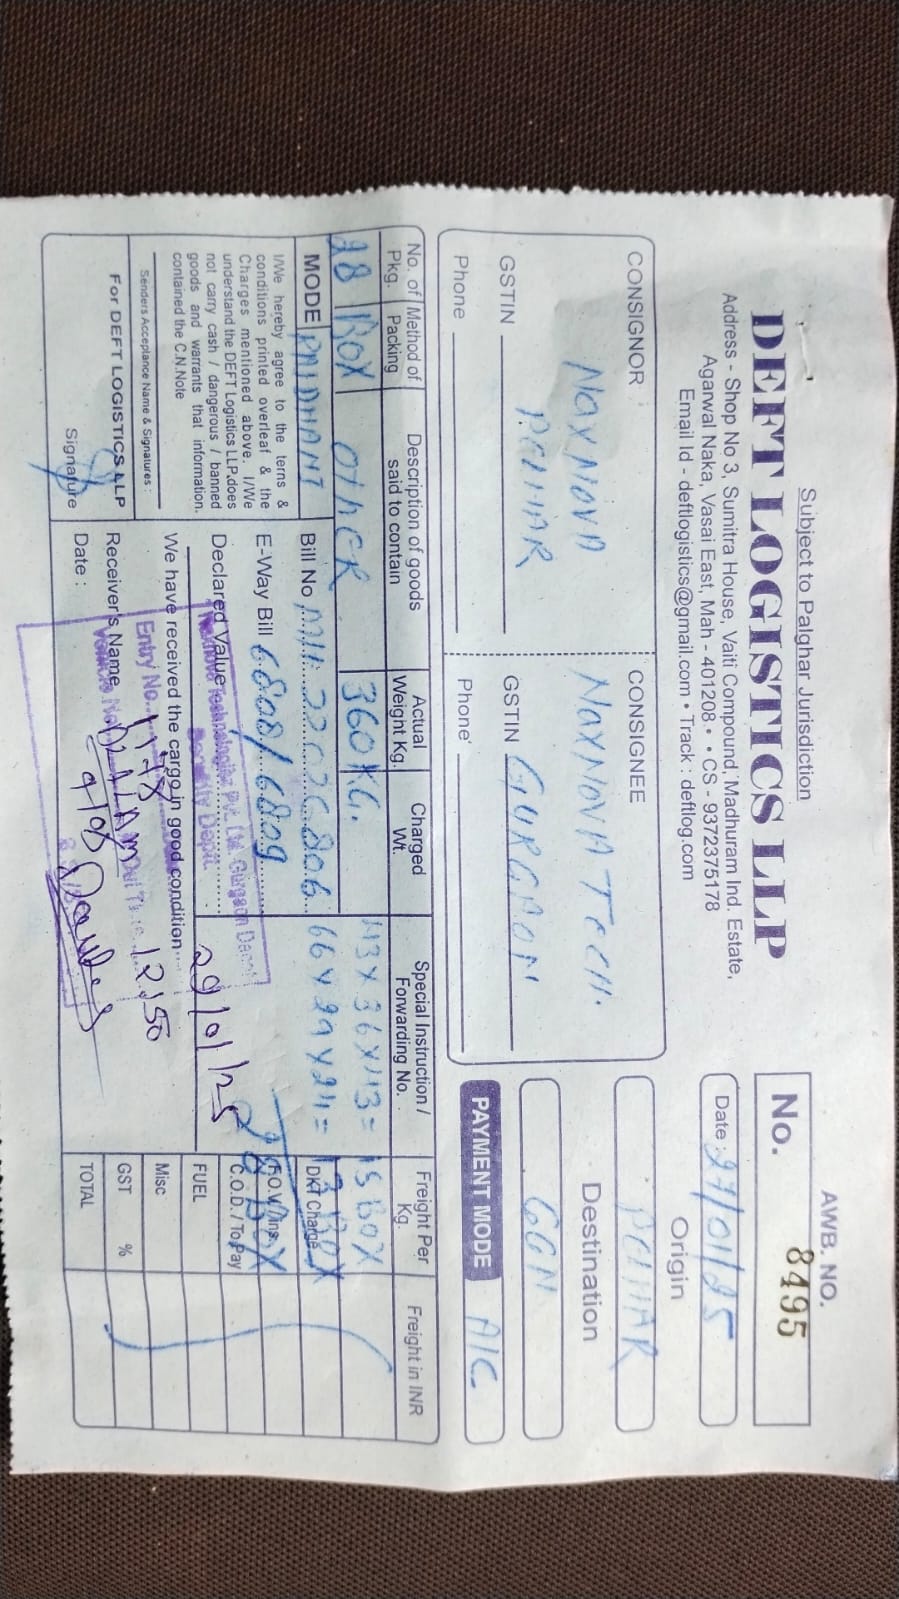 Subject to Palghar Jurisdiction
DEFT LOGISTICS LLP
Address - Shop No 3, Sumitra House, Vaiti Compound, Madhuram Ind. Estate,
Agarwal Naka, Vasai East, Mah - 401208 • • CS - 9372375178
Email Id - deftlogistics@gmail.com • Track : deftlog.com
AWB. NO.
No. 8495
Date : 27/01/25
Origin
Destination
GGN
PAYMENT MODE A/C
CONSIGNOR
NAXNOVA
GSTIN
Phone
CONSIGNEE
NAXNOVA TECH.
GSTIN GURGAON
Phone
No. of Pkg. Method of Packing Description of goods said to contain Actual Weight Kg. Charged Wt. Special Instruction / Forwarding No. Freight Per Kg. Freight in INR
28 BOX OTHER 360 KG. 43 x 36 x 43 = 15 BOX
66 x 29 x 24 = 13 BOX
28 BOX
MODE
Bill No
E-Way Bill 6808/6809
Declared Value
DKT Charge
FOV / Ins.
C.O.D. / To Pay
FUEL
Misc
GST %
TOTAL
I/We hereby agree to the terns &
conditions printed overleaf & the
Charges mentioned above. I/We
understand the DEFT Logistics LLP.does
not carry cash / dangerous / banned
goods and warrants that information.
contained the C.N.Note
Senders Acceptance Name & Signatures :
For DEFT LOGISTICS LLP
Signature
We have received the cargo in good condition
Receiver's Name
Date :
Technologies Pvt. Ltd. Gurgaon
Security Deptt.
Entry No.
12:50
29/01/25